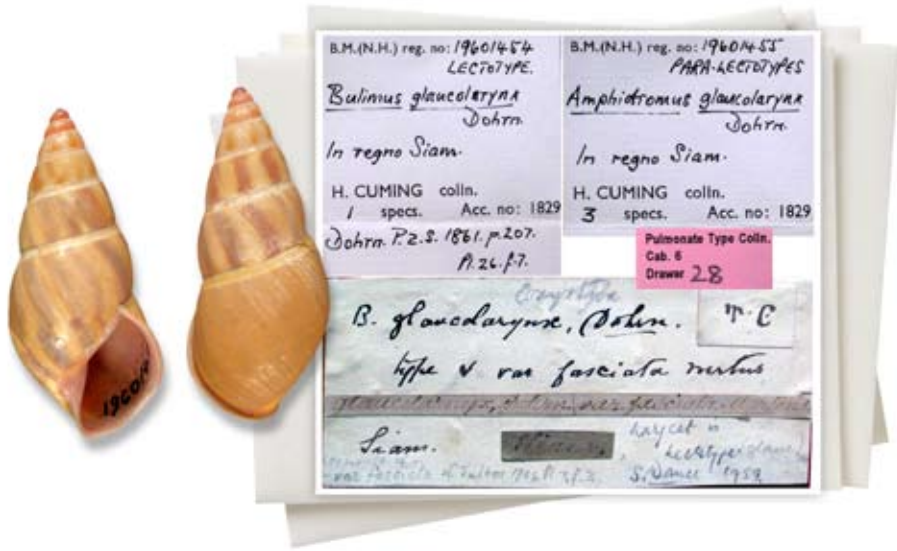 B.M.(N.H.) reg. no: 19601454
LECTOTYPE.
Bulimus glaucolarynx
Dohrn.
In regno Siam.
H. CUMING colln.
1 specs. Acc. no: 1829
Dohrn. P.Z.S. 1861. p.207.
Pl.26.f.7.
B.M.(N.H.) reg. no: 19601455
PARA-LECTOTYPES
Amphidromus glaucolarynx
Dohrn.
In regno Siam.
H. CUMING colln.
3 specs. Acc. no: 1829
Pulmonate Type Colln.
Cab. 6
Drawer 28
B. glaucolarynx, Dohrn.
T. C
type & var fasciata
Siam.
S. Dance 1959
196014